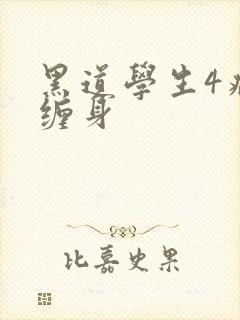 黑道學生4
缠身
比嘉史果